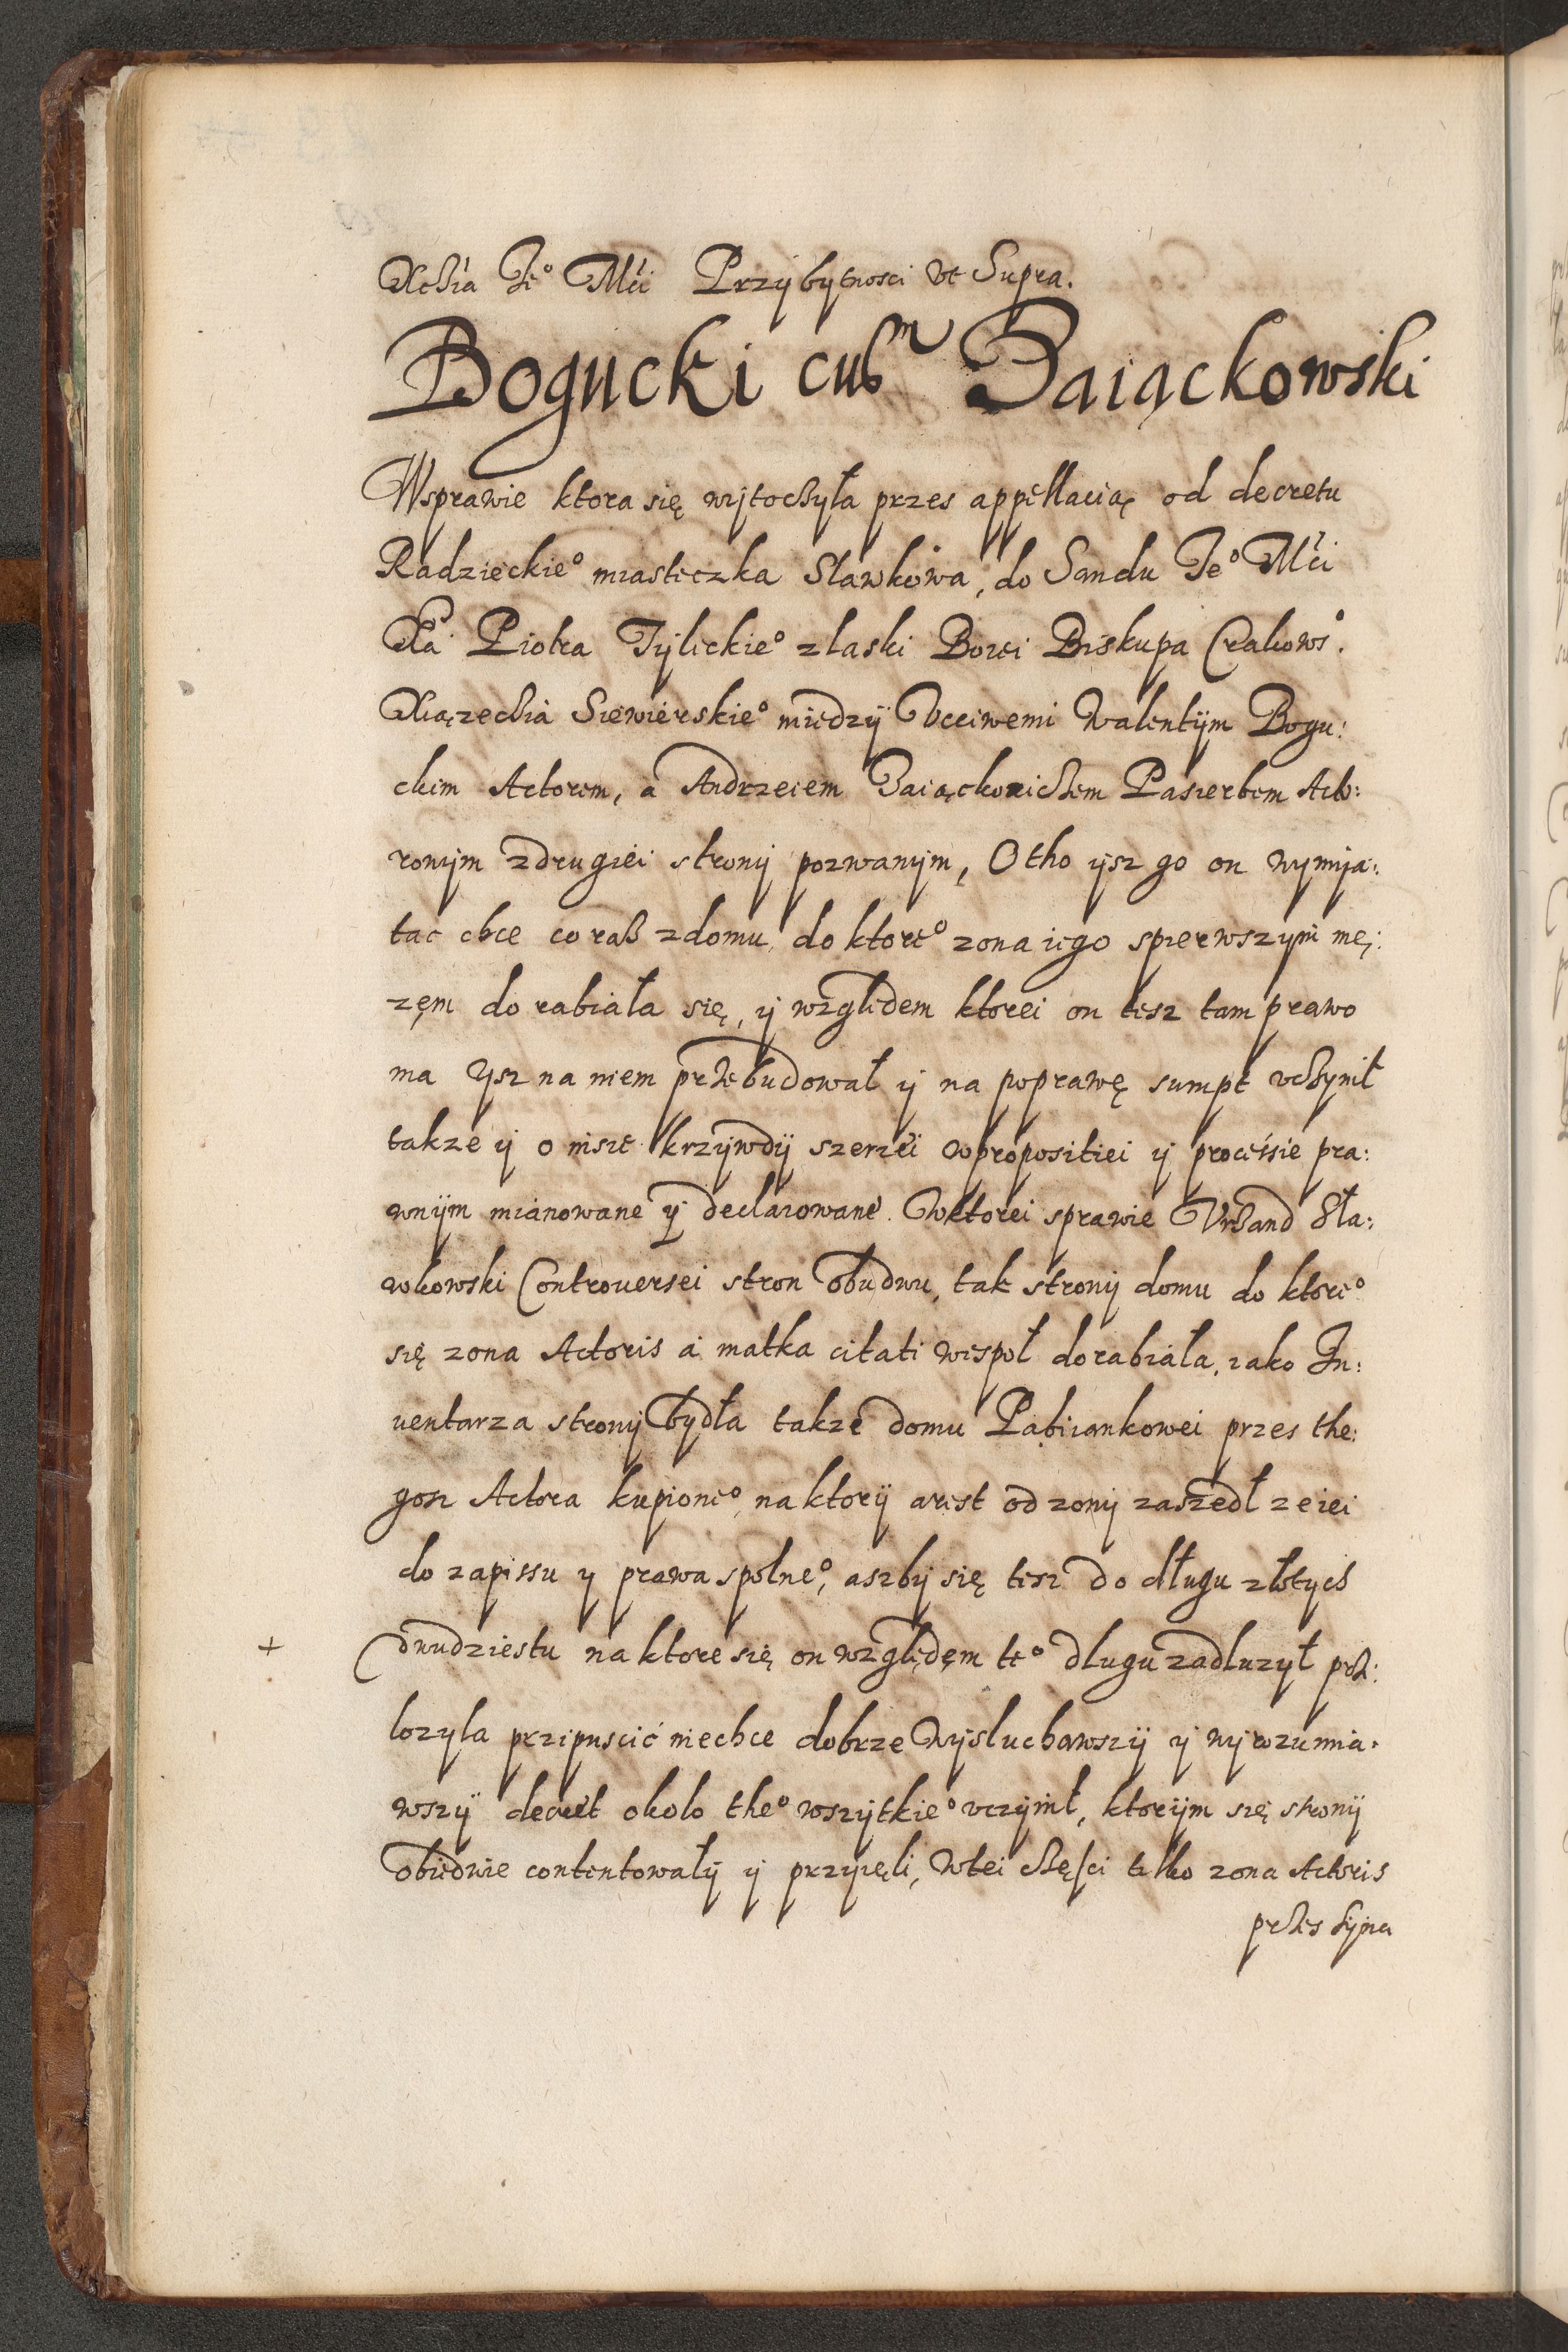 Xcħia Je° Mći Przÿbytnosci vt Supra.
Bogucki cu&^m Zaiąckowski
Wsprawie ktora się wÿtocħyła przes appellacią od decretu
Radzieckie° miasteczka Sławkowa, do Sandu Je° Mći
Xa Piotra Tÿlickie° z laski Bozei Biskupa Crakows°.
Xiązecħia Siewierskie° miedzÿ Vcciwemi Walentÿm Bogu:
ckim Actorem, a Andrzeiem Zaiąckowicħem Pasierbem Acto:
rowÿm zdrugiei stronÿ pozwanÿm, Otho ÿsz go on wymia:
tac chce co raß zdomu, do ktore° zona iego spierwszym mę:
zęm do rabiała się, ÿ względem ktorei on tesz tam prawo
ma Ysz na niem przebudował ÿ na poprawę sumpt vcħynił
takze ÿ o insze krzÿwdÿ szerzei wpropositiei ÿ processie pra:
wnÿm mianowane ÿ declarowane. Wktorei sprawie Vrħand Sła:
wkowski Controuersei stron obudwu, tak stronÿ domu do ktore°
się zona Actoris a matka citati wespoł dorabiała, iako In:
uentarza stronÿ bydła takze domu Pabiankowei przes the:
gosz Actora kupione°, na ktorÿ arest od zonÿ zaszedł ze iei
do zapissu y prawa spolne°, aszbÿ się tesz do długu złotych
+ dwudziestu na ktore się on względęm te° dlugu zadluzył prz:
lozyla przipuscić niechce dobrze wÿsluchawszÿ ÿ wÿrozumia:
wszÿ decret okolo the° wszÿtkie° vczÿnił, ktorÿm się stronÿ
obiedwie contentowałÿ ÿ przyięli, wtei cħęsci telko zona Actoris
przes Sÿna